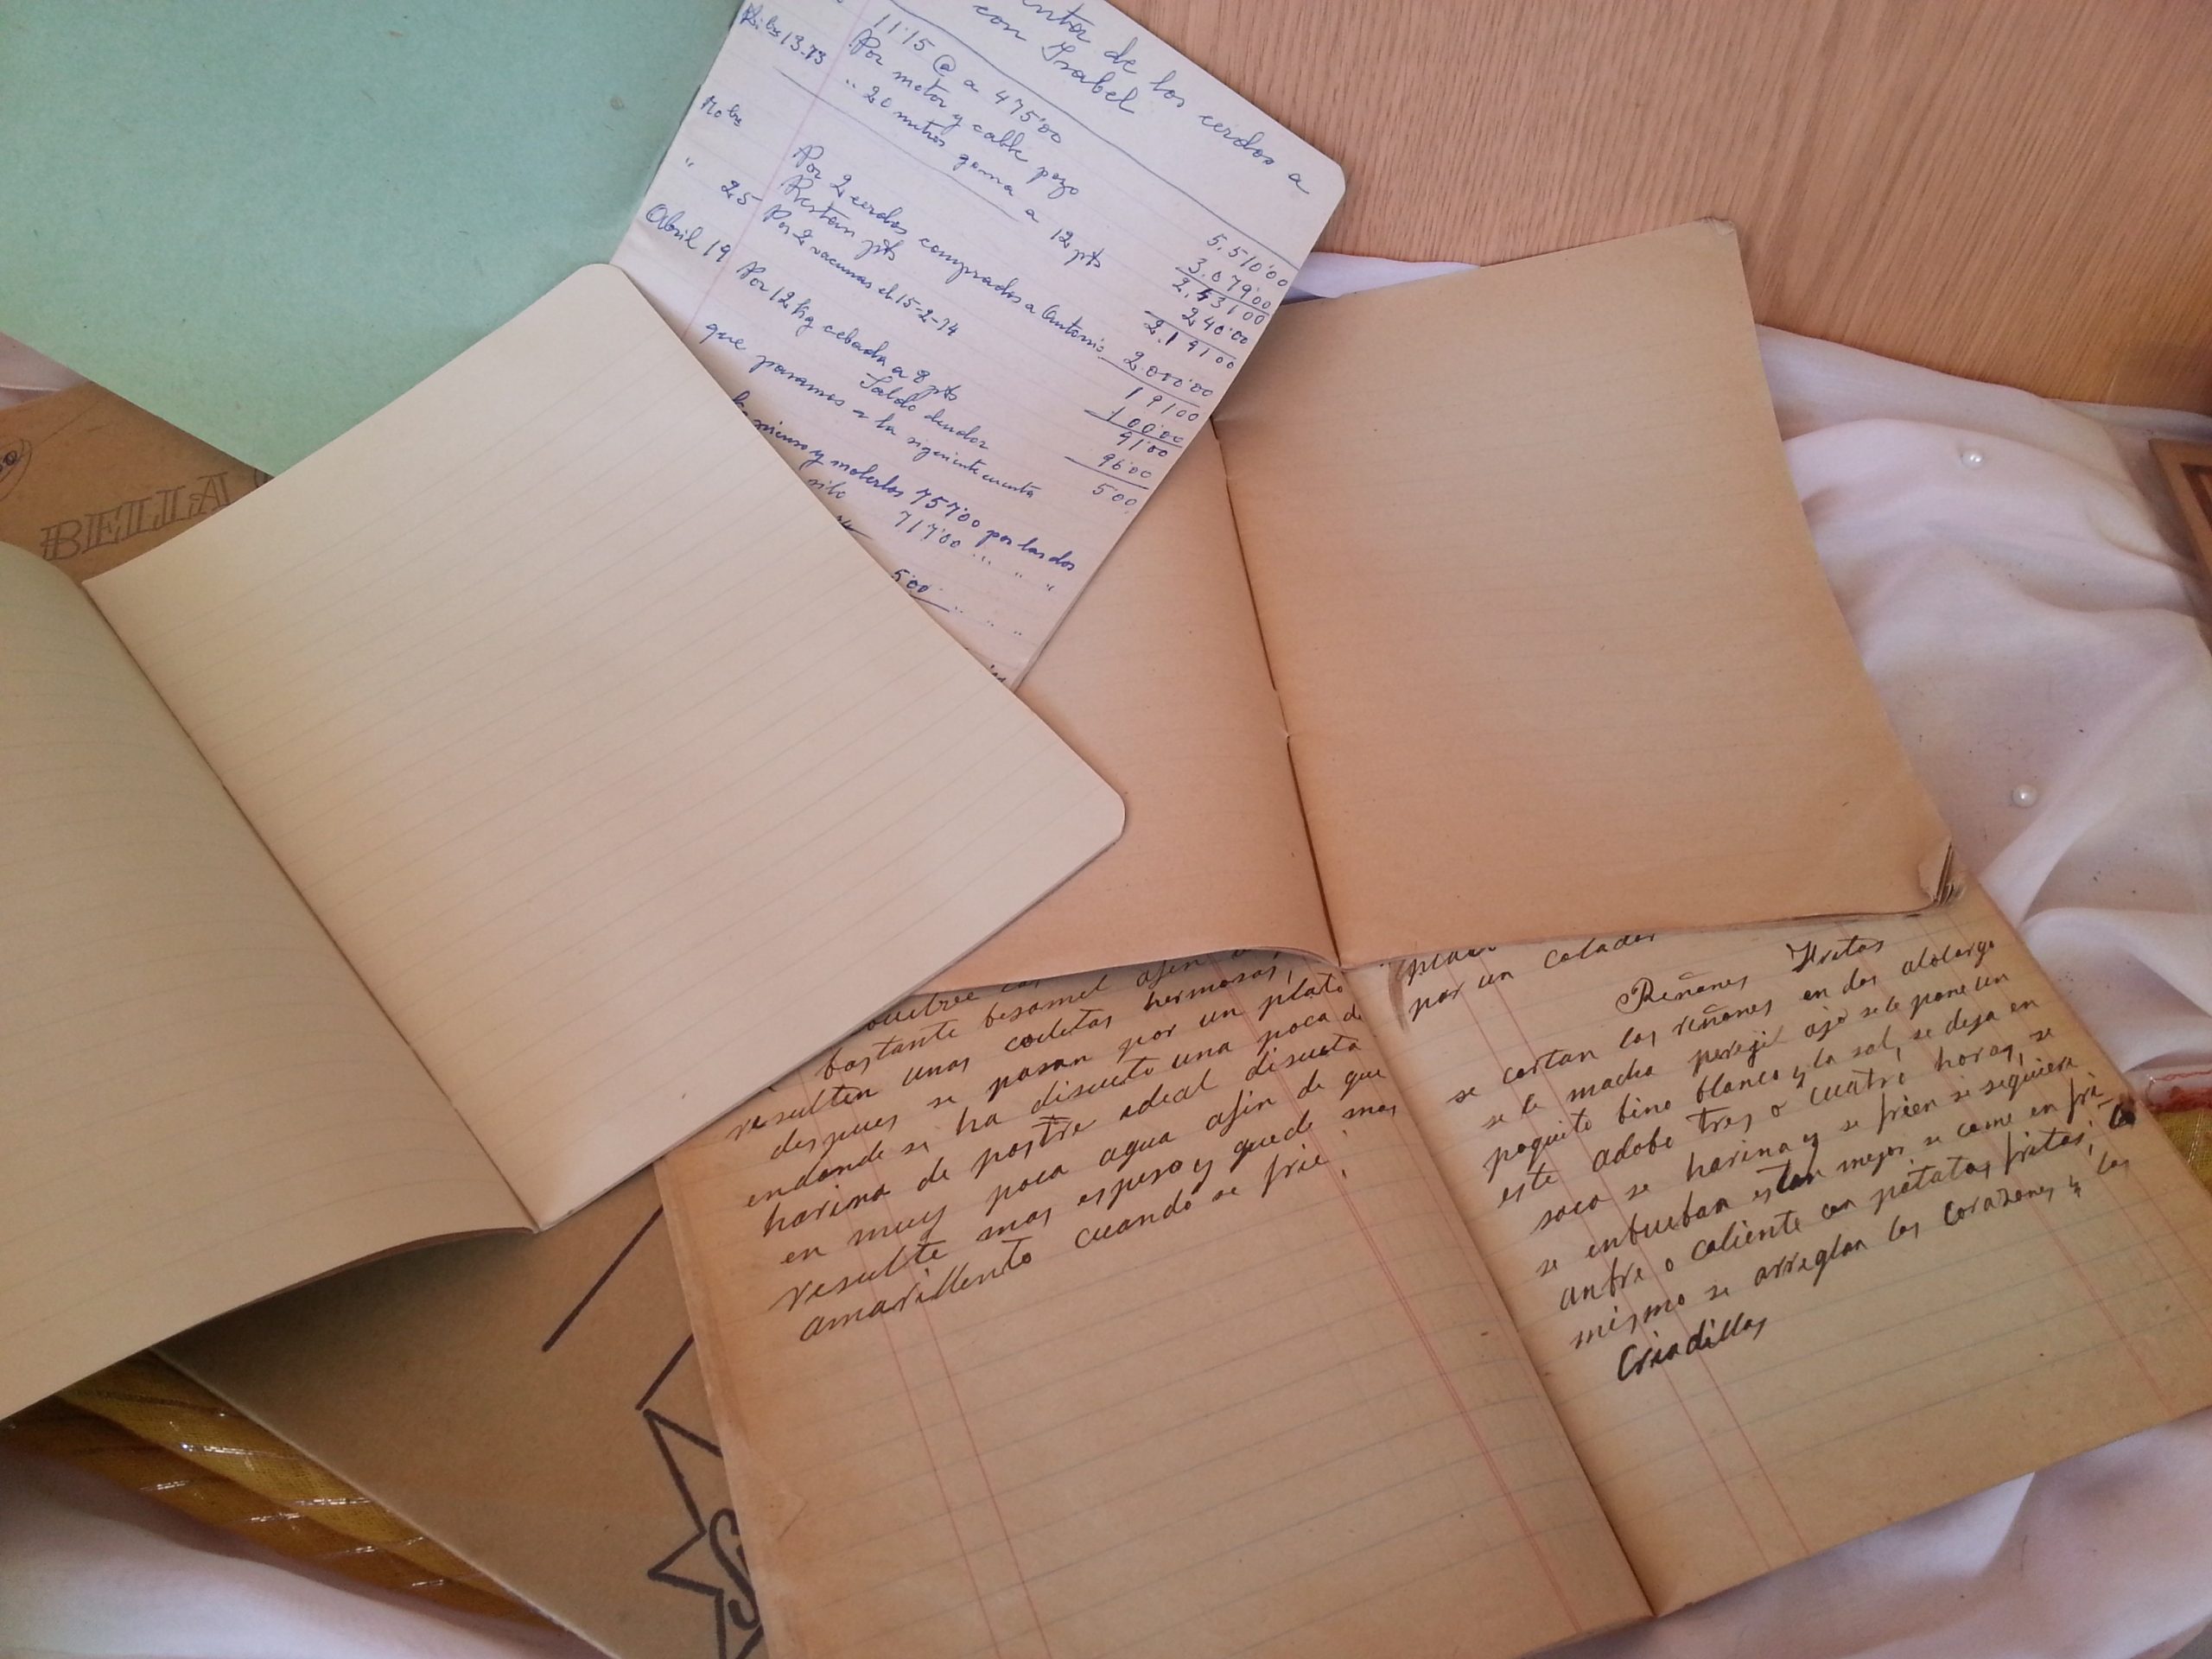 de los cerdos a
con Isabel
11'15 @ a 475'00 5.510'00
13-73 Por motor y cable pozo 3.079'00
2.431'00
" 20 metros goma a 12 pts 240'00
2.191'00
Nobre Por 2 cerdos comprados a Antonio 2.000'00
" Restan pts 191'00
25 Por 2 vacunas el 15-2-74 100'00
91'00
Abril 19 Por 12 kg cebada a 8 pts 96'00
Saldo deudor 5'00
que pasamos a la siguiente cuenta
y molerlos 757'00 por los dos
717'00 " " "
5'00 " " "
BELLA
bastante besamel afin
resulten unas codetas hermosas,
despues se pasan por un plato
endonde se ha disuelto una poca de
harina de postre ideal disuelta
en muy poca agua afin de que
resulte mas espeso y quede mas
amarillento cuando se frie.
por un colador
Riñones Fritos
se cortan los riñones en dos alolargo
se le macha peregil ajo se le pone un
poquito bino blanco y la sal, se deja en
este adobo tres o cuatro horas, se
saca se harina y se frien se siquiera
se enbueban estan mejor se come en fri-
anbre o caliente con patatas fritas; lo
mismo se arreglan los corazones y las
Criadillas